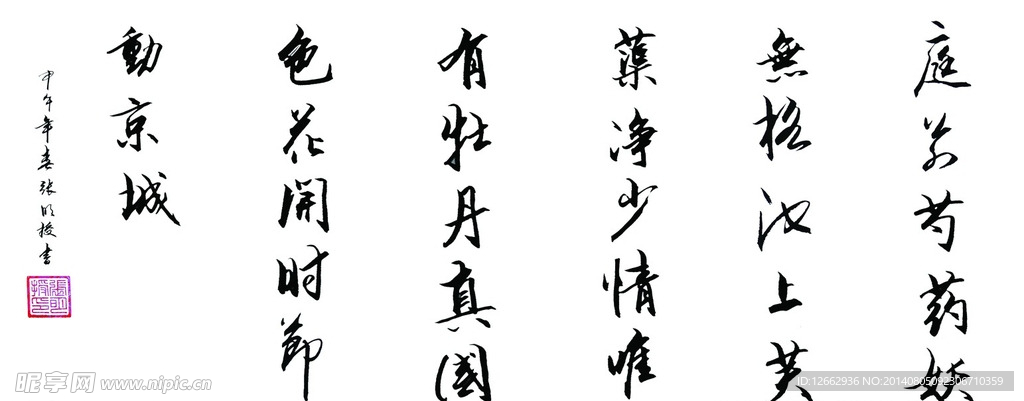 庭前芍药妖
無格池上芙
蕖净少情唯
有牡丹真國
色花開时節
動京城
甲午年春张明授書
張明
授印
昵享网 www.nipic.cn
ID:12662936 NO:20140805092306710359